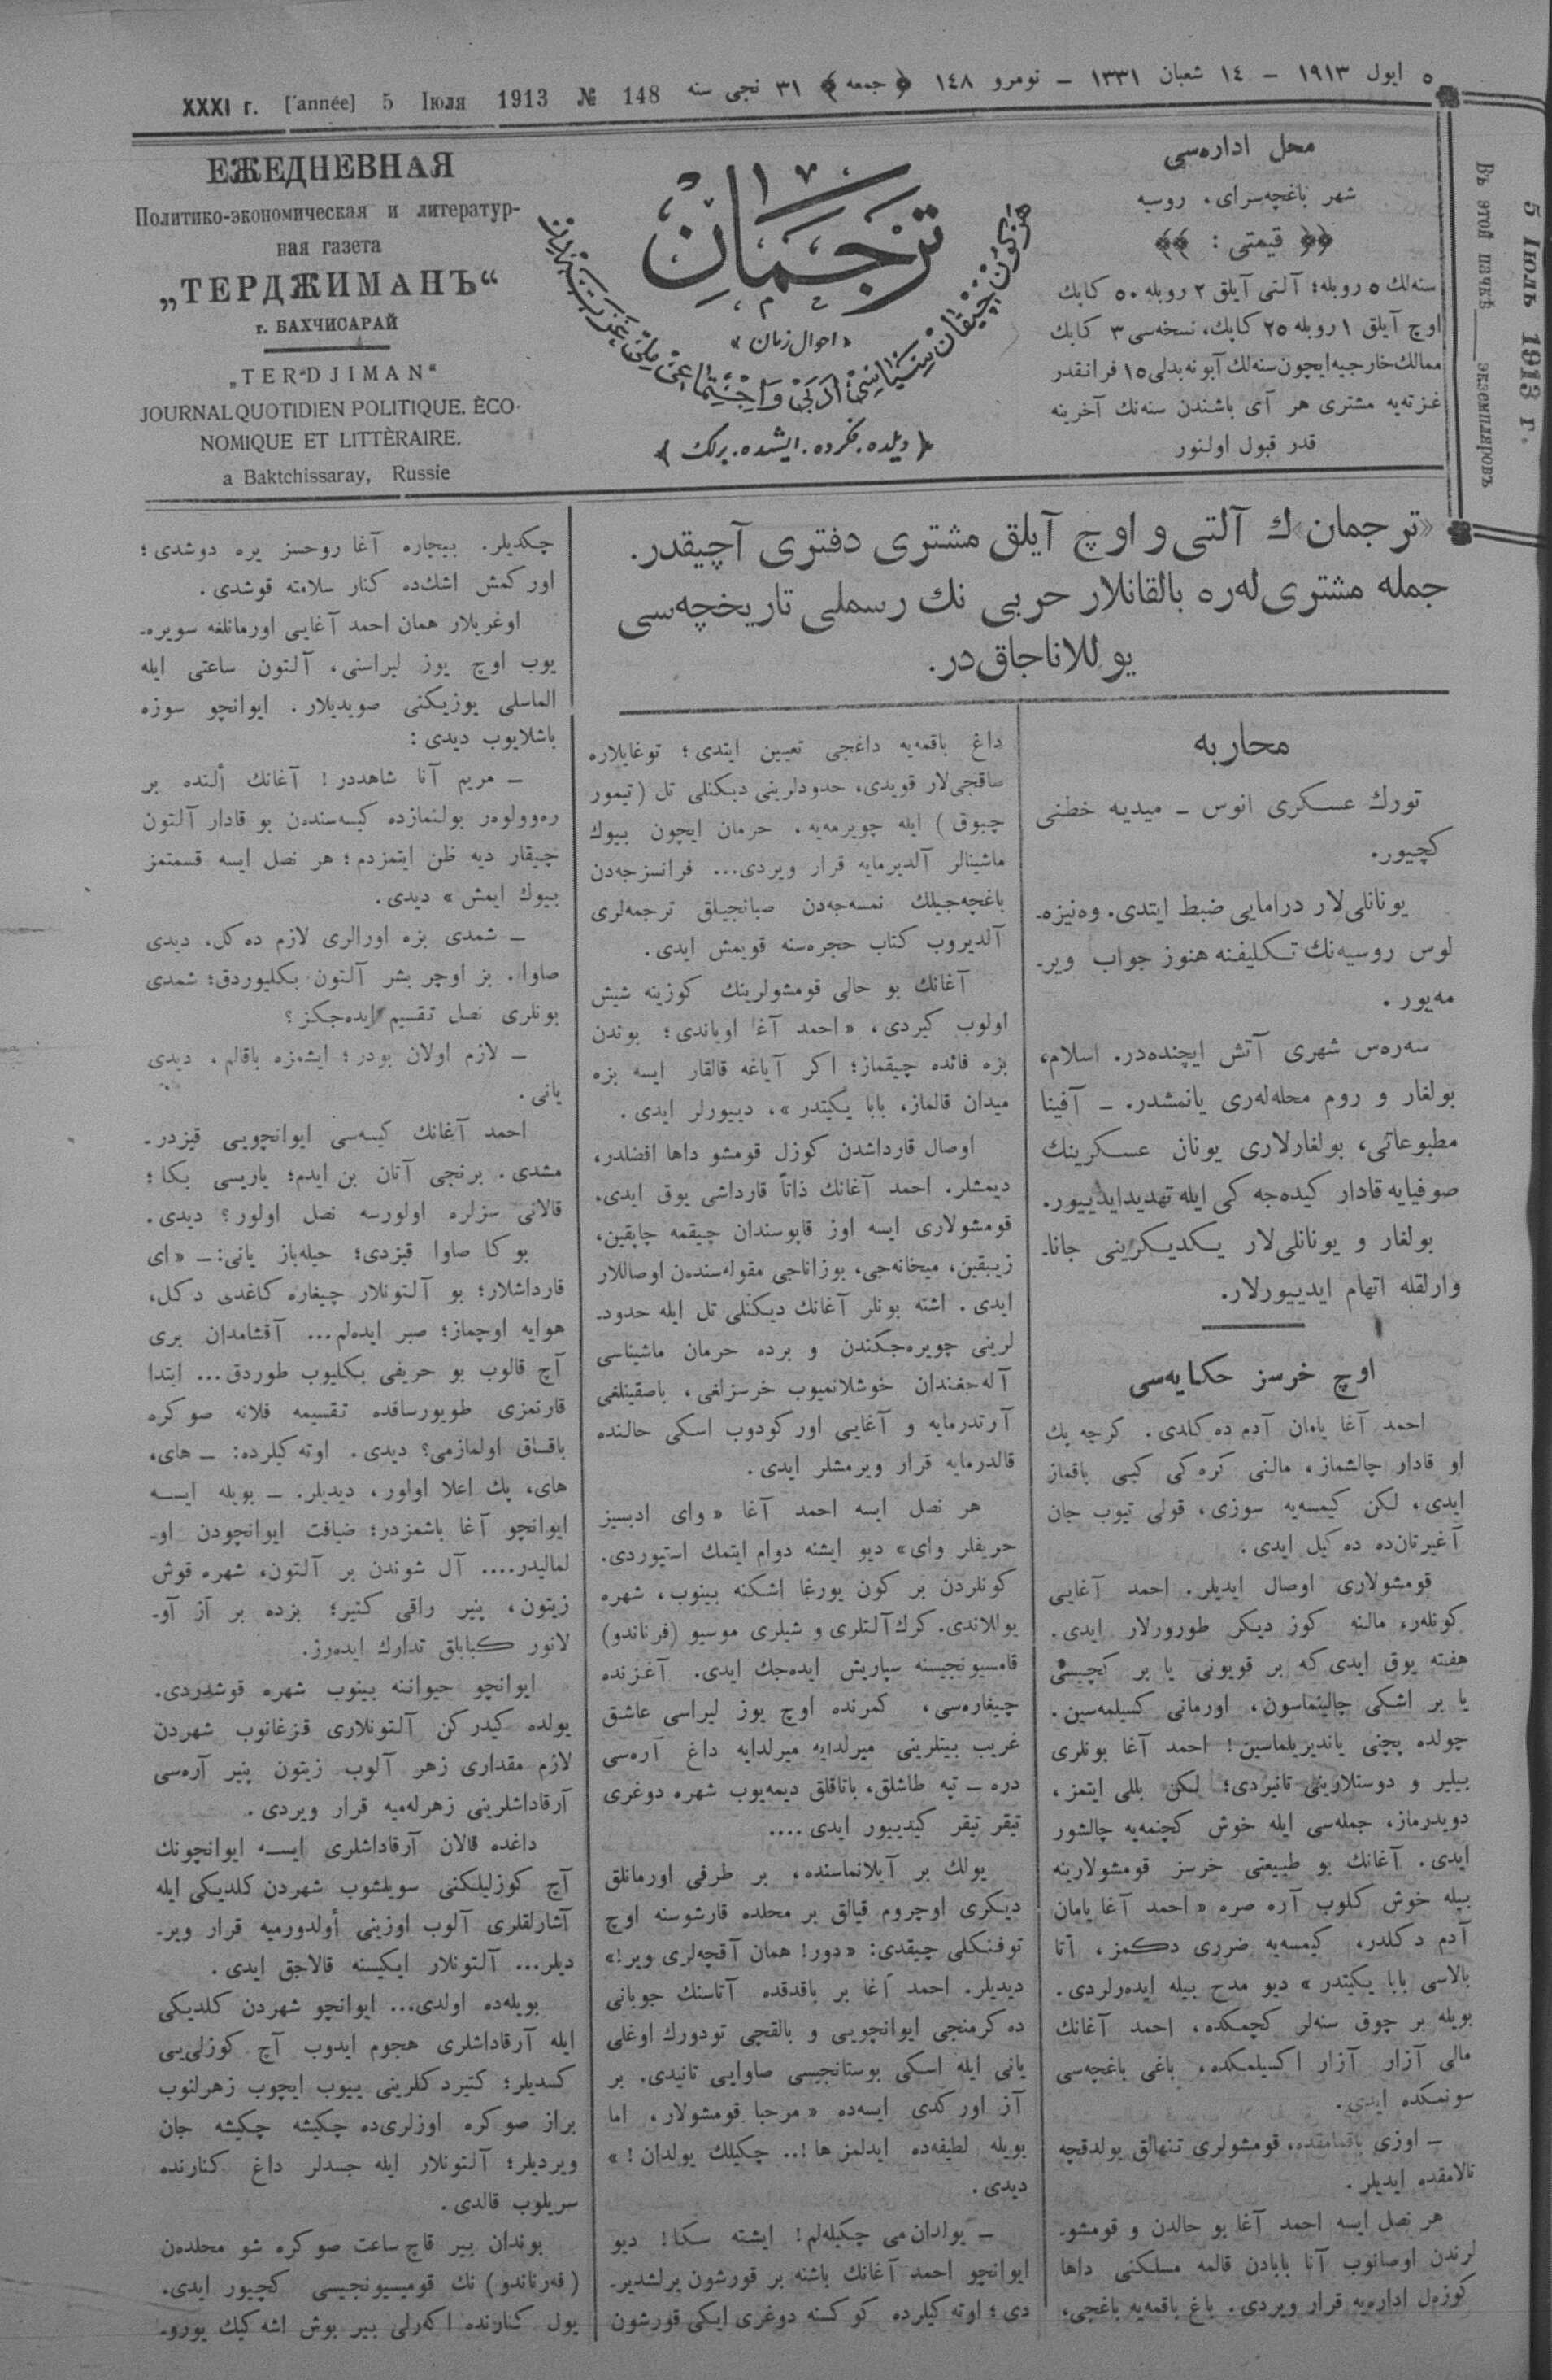 ٥ ایول ١٩١٣ – ١٤ شعبان ١٣٣١ – نومرو ١٤٨ ﴿جمعه﴾ ٣١ نجی سنه
XXXI г. [année] 5 Іюля 1913 № 148
محل اداره‌سی
شهر باغچه‌سرای، روسیه
﴿﴿ قیمتی : ﴾﴾
سنه‌لك ٥ روبله؛ آلتی آیلق ٢ روبله ٥٠ كاپك
اوچ آیلق ١ روبله ٢٥ كاپك، نسخه‌سی ٣ كاپك
ممالك خارجیه ایچون سنه‌لك آبونه بدلی ١٥ فرانقدر
غزته‌یه مشتری هر آی باشندن سنه‌نك آخرینه
قدر قبول اولنور
ترجمان
«احوال زمان»
هر كون چیقان سیاسی، ادبی و اجتماعی ملی غزته‌در
﴿ دیلده. فكرده. ایشده. برلك ﴾
ЕЖЕДНЕВНАЯ
Политико-экономическая и литератур-
ная газета
„ТЕРДЖИМАНЪ“
г. БАХЧИСАРАЙ
„TERDJIMAN“
JOURNAL QUOTIDIEN POLITIQUE. ÈCO-
NOMIQUE ET LITTÈRAIRE.
a Baktchissaray, Russie
5 Іюль 1913 г.
Въ этой пачкѣ ____ экземпляровъ
«ترجمان»ك آلتی و اوچ آیلق مشتری دفتری آچیقدر.
جمله مشتری‌له‌ره بالقانلار حربی نك رسملی تاریخچه‌سی
یوللاناجاق‌در.
محاربه
تورك عسكری انوس – میدیه خطنی
كچیور.
یونانلی‌لار درامایی ضبط ایتدی. وه‌نیزه‌-
لوس روسیه‌نك تكلیفنه هنوز جواب ویر-
مه‌یور.
سه‌ره‌س شهری آتش ایچنده‌در. اسلام،
بولغار و روم محله‌له‌ری یانمشدر. – آفینا
مطبوعاتی، بولغارلاری یونان عسكرینك
صوفیایه قادار كیده‌جه‌كی ایله تهدید ایدییور.
بولغار و یونانلی‌لار یكدیكرینی جانا-
وارلقله اتهام ایدییورلار.
اوچ خرسز حكایه‌سی
احمد آغا یامان آدم ده‌كلدی. كرچه پك
او قادار چالشماز، مالنی كره‌كی كبی باقماز
ایدی، لكن كیمسه‌یه سوزی، قولی تیوب جان
آغیرتان‌ده ده‌كیل ایدی.
قومشولاری اوصال ایدیلر. احمد آغایی
كونله‌ر، مالنه كوز دیكر طورورلار ایدی.
هفته یوق ایدی كه بر قویونی یا بر كچیسی
یا بر اشكی چالینماسون، اورمانی كسیلمه‌سین.
چولده پچنی یاندیریلماسین! احمد آغا بونلری
بیلیر و دوستلارینی تانیردی؛ لكن بللی ایتمز،
دویدرماز، جمله‌سی ایله خوش كچنمه‌یه چالشور
ایدی. آغانك بو طبیعتی خرسز قومشولارینه
بیله خوش كلوب آره صره «احمد آغا یامان
آدم دكلدر، كیمسه‌یه ضرری دكمز، آتا
بالاسی بابا یكیتدر» دیو مدح بیله ایده‌رلردی.
بویله بر چوق سنه‌لر كچمكده، احمد آغانك
مالی آزار آزار اكسیلمكده، باغی باغچه‌سی
سونمكده ایدی.
– اوزی باقمامقده، قومشولری تنهالق بولدقچه
تالامقده ایدیلر.
هر نصل ایسه احمد آغا بو حالدن و قومشو-
لرندن اوصانوب آتا بابادن قالمه مسلكنی داها
كوزه‌ل اداره‌یه قرار ویردی. باغ باقمه‌یه باغجی،
داغ باقمه‌یه داغجی تعیین ایتدی؛ توغایلاره
ساقجی‌لار قویدی، حدودلرینی دیكنلی تل (تیمور
چبوق) ایله چویرمه‌یه، حرمان ایچون بیوك
ماشینالر آلدیرمایه قرار ویردی... فرانسزجه‌دن
باغچه‌جیلك نمسه‌جه‌دن صبانجیلق ترجمه‌لری
آلدیروب كتاب حجره‌سنه قویمش ایدی.
آغانك بو حالی قومشولرینك كوزینه شیش
اولوب كیردی، «احمد آغا اویاندی؛ بوندن
بزه فائده چیقماز؛ اكر آیاغه قالقار ایسه بزه
میدان قالماز، بابا یكیتدر»، دییورلر ایدی.
اوصال قارداشدن كوزل قومشو داها افضلدر،
دیمشلر. احمد آغانك ذاتاً قارداشی یوق ایدی،
قومشولاری ایسه اوز قاپوسندان چیقمه چاپقین،
زیبقین، میخانه‌جی، بوزاناجی مقوله‌سندن اوصاللار
ایدی. اشته بونلر آغانك دیكنلی تل ایله حدود-
لرینی چویره‌جكندن و برده حرمان ماشیناسی
آله‌جغندان خوشلانمیوب خرسزلغی، باصقینلغی
آرتدرمایه و آغایی اوركودوب اسكی حالنده
قالدرمایه قرار ویرمشلر ایدی.
هر نصل ایسه احمد آغا «وای ادبسیز
حریفلر وای» دیو ایشنه دوام ایتمك استیوردی.
كونلردن بر كون یورغا اشكنه بینوب، شهره
یوللاندی. كرك آلتلری و شیلری موسیو (فرناندو)
قامسیونجیسنه سپاریش ایده‌جك ایدی. آغزنده
چیغاره‌سی، كمرنده اوچ یوز لیراسی عاشق
غریب بیتلرینی میرلدایه میرلدایه داغ آره‌سی
دره – تپه طاشلق، باتاقلق دیمه‌یوب شهره دوغری
تیقر تیقر كیدییور ایدی....
یولك بر آیلانماسنده، بر طرفی اورمانلق
دیكری اوچروم قیالق بر محلده قارشوسنه اوچ
توفنكلی چیقدی: «دور! همان آقچه‌لری ویر!»
دیدیلر. احمد آغا بر باقدقده آتاسنك جوبانی
ده‌كرمنجی ایوانچویی و بالقچی تودورك اوغلی
یانی ایله اسكی بوستانجیسی صاوایی تانیدی. بر
آز اوركدی ایسه‌ده «مرحبا قومشولار، اما
بویله لطیفه‌ده ایدلمز ها!.. چكیلك یولدان!»
دیدی.
– یولدان می چكیله‌لم! ایشته سكا! دیو
ایوانچو احمد آغانك باشنه بر قورشون یرلشدیر-
دی؛ اوته‌كیلرده كوكسنه دوغری ایكی قورشون
چكدیلر. بیچاره آغا روحسز یره دوشدی؛
اوركمش اشك‌ده كنار سلامته قوشدی.
اوغریلار همان احمد آغایی اورمانلغه سویره‌-
یوب اوچ یوز لیراسنی، آلتون ساعتی ایله
الماسلی یوزیكنی صویدیلار. ایوانچو سوزه
باشلایوب دیدی:
– مریم آنا شاهددر! آغانك ألنده بر
ره‌وولوه‌ر بولنمازده كیسه‌سندن بو قادار آلتون
چیقار دیه ظن ایتمزدم؛ هر نصل ایسه قسمتمز
بیوك ایمش» دیدی.
– شمدی بزه اورالری لازم ده‌كل، دیدی
صاوا. بز اوچر بشر آلتون بكلیوردق؛ شمدی
بونلری نصل تقسیم ایده‌جكز؟
– لازم اولان بودر؛ ایشمزه باقالم، دیدی
یانی.
احمد آغانك كیسه‌سی ایوانچویی قیزدر-
مشدی. برنجی آتان بن ایدم؛ یاریسی بكا؛
قالانی سزلره اولورسه نصل اولور؟ دیدی.
بوكا صاوا قیزدی؛ حیله‌باز یانی:– «ای
قارداشلار؛ بو آلتونلار چیغاره كاغدی دكل،
هوایه اوچماز؛ صبر ایده‌لم... آقشامدان بری
آچ قالوب بو حریفی بكلیوب طوردق... ابتدا
قارنمزی طویورساقده تقسیمه فلانه صوكره
باقساق اولمازمی؟ دیدی. اوته‌كیلرده: – های،
های، پك اعلا اولور، دیدیلر. – بویله ایسه
ایوانچو آغا باشمزدر؛ ضیافت ایوانچودن او-
لمالیدر.... آل شوندن بر آلتون، شهره قوش
زیتون، پنیر راقی كتیر؛ بزده بر آز آو-
لانور كبابلق تدارك ایده‌رز.
ایوانچو حیواننه بینوب شهره قوشدردی.
یولده كیدركن آلتونلاری قزغانوب شهردن
لازم مقداری زهر آلوب زیتون پنیر آره‌سی
آرقاداشلرینی زهرله‌میه قرار ویردی.
داغده قالان آرقاداشلری ایسه ایوانچونك
آچ كوزلیلكنی سویلشوب شهردن كلدیكی ایله
آشارلقلری آلوب اوزینی أولدورمیه قرار ویر-
دیلر... آلتونلار ایكیسنه قالاجق ایدی.
بویله‌ده اولدی... ایوانچو شهردن كلدیكی
ایله آرقاداشلری هجوم ایدوب آچ كوزلی‌یی
كسدیلر؛ كتیردكلرینی ییوب ایچوب زهرلنوب
براز صوكره اوزلری‌ده چكیشه چكیشه جان
ویردیلر؛ آلتونلار ایله جسدلر داغ كنارنده
سریلوب قالدی.
بوندان بیر قاچ ساعت صوكره شو محلده‌ن
(فه‌رناندو) نك قومیسیونجیسی كچیور ایدی.
یول كنارنده اكه‌رلی بیر بوش اشه‌كیك یورو-